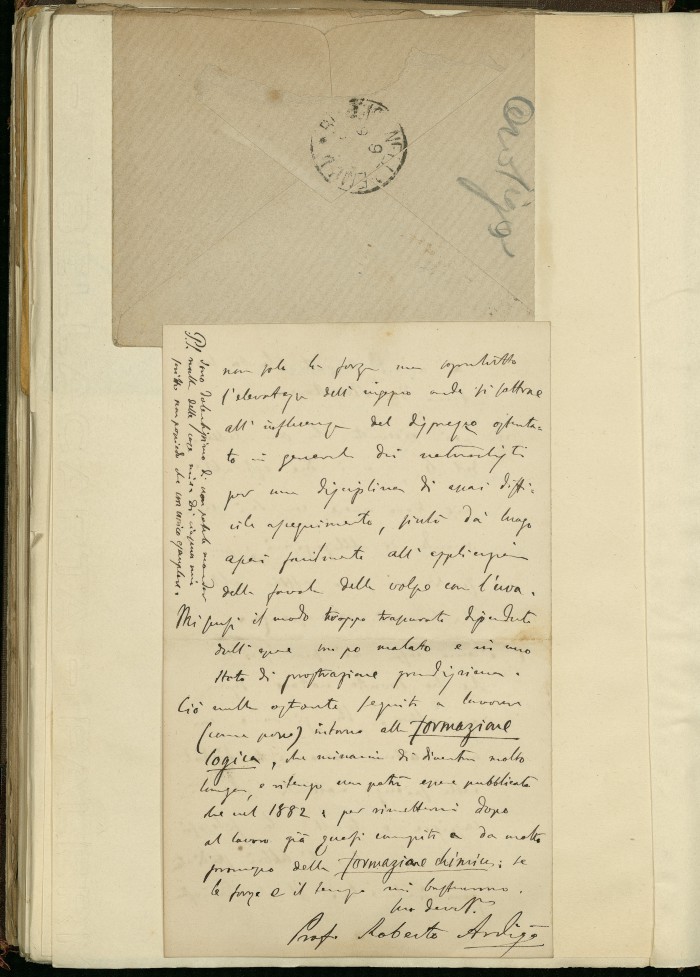 Ardigò
non solo la forza ma soprattutto
l'elevatezza dell' ingegno onde si sottrae
all' influenza del disprezzo ostenta-
to in generale dai naturalisti
per una disciplina di assai diffi-
cile conseguimento, dà luogo
assai facilmente all' applicazione
della favola della volpe con l'uva.
Mi scusi il modo troppo trasparente dipendente
dall' essere un po malato e in uno
stato di prostrazione grandissima.
Ciò nulla ostante seguito a lavorare
(come posso) intorno alla formazione
logica, che minaccia di diventar molto
lunga, e ritengo non potrà essere pubblicata
che nel 1882; per rimettermi dopo
al lavoro già quasi compito da molto
della formazione chimica; se
le forze e il tempo mi basteranno.
Suo dev.
Prof. Roberto Ardigò
P.S. Sono dolentissimo di non poterle mandar
nulla delle cose mie di cui
non possiedo che un unico esemplare.